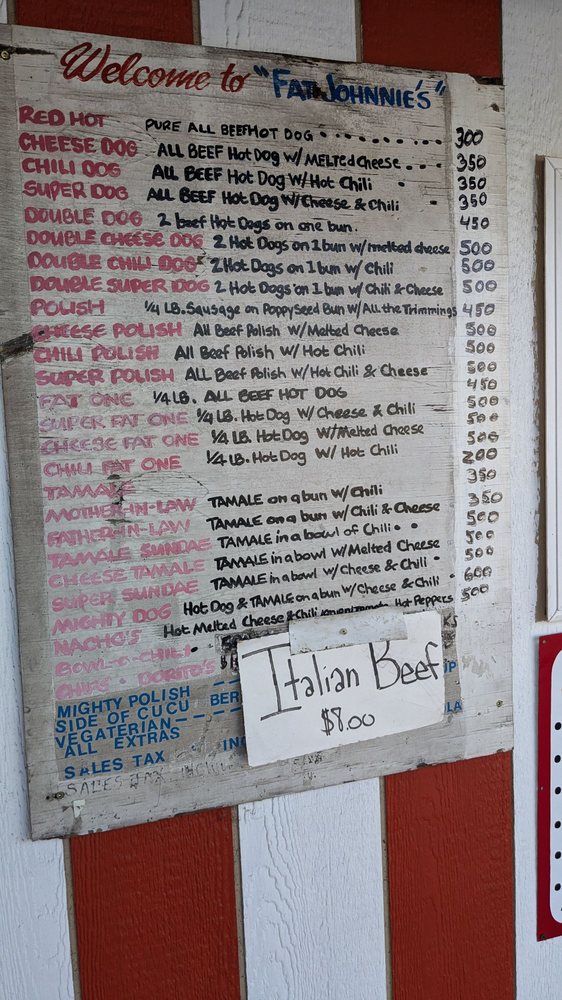 Welcome to "FAT JOHNNIE'S"
RED HOT PURE ALL BEEF HOT DOG 300
CHEESE DOG ALL BEEF Hot Dog W/ MELTED Cheese 350
CHILI DOG ALL BEEF Hot Dog W/ Hot Chili 350
SUPER DOG ALL BEEF Hot Dog W/ Cheese & Chili 350
DOUBLE DOG 2 beef Hot Dogs on one bun. 450
DOUBLE CHEESE DOG 2 Hot Dogs on 1 bun w/ melted cheese 500
DOUBLE CHILI DOG 2 Hot Dogs on 1 bun w/ Chili 500
DOUBLE SUPER DOG 2 Hot Dogs on 1 bun w/ Chili & Cheese 500
POLISH 1/4 LB. Sausage on Poppy Seed Bun w/ All the Trimmings 450
CHEESE POLISH All Beef Polish W/ Melted Cheese 500
CHILI POLISH All Beef Polish W/ Hot Chili 500
SUPER POLISH ALL Beef Polish W/ Hot Chili & Cheese 500
FAT ONE 1/4 LB. ALL BEEF HOT DOG 450
SUPER FAT ONE 1/4 LB. Hot Dog W/ Cheese & Chili 500
CHEESE FAT ONE 1/4 LB. Hot Dog W/ Melted Cheese 500
CHILI FAT ONE 1/4 LB. Hot Dog W/ Hot Chili 500
TAMALE 200
MOTHER-IN-LAW TAMALE on a bun w/ Chili 350
FATHER-IN-LAW TAMALE on a bun w/ Chili & Cheese 350
TAMALE SUNDAE TAMALE in a bowl of Chili 500
CHEESE TAMALE TAMALE in a bowl W/ Melted Cheese 500
SUPER SUNDAE TAMALE in a bowl w/ Cheese & Chili 500
MIGHTY DOG Hot Dog & TAMALE on a bun w/ Cheese & Chili 600
NACHO'S Hot Melted Cheese & Chili Hot Peppers 500
BOWL-O-CHILI
CHIPS • DORITO'S
MIGHTY POLISH
SIDE OF CUCU BER
VEGATERIAN
ALL EXTRAS
SALES TAX INC
SALES TAX
Italian Beef
$8.00